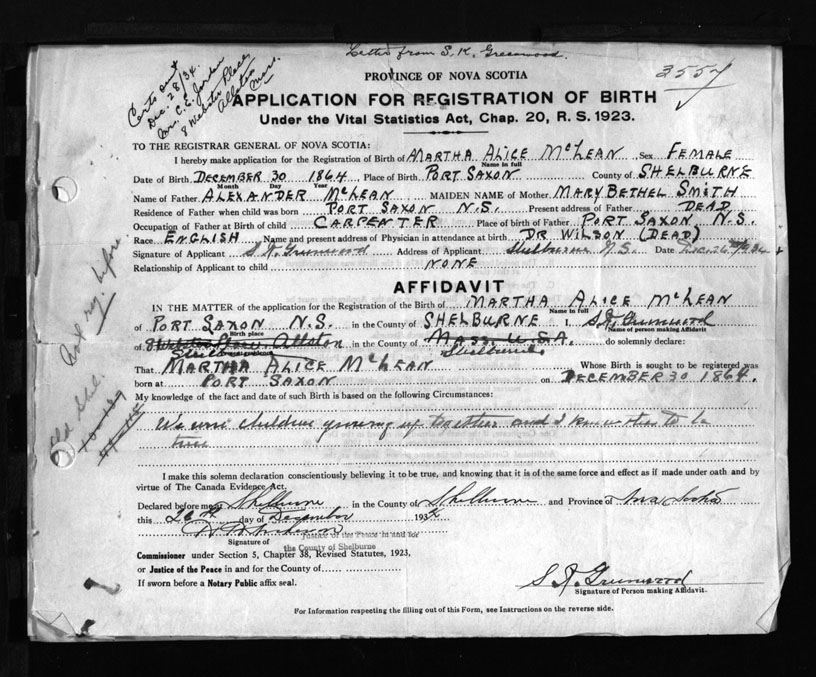 Letter from S. K. Greenwood.
Certs out
Dec. 28/34.
Mrs. C. E. Jordan
8 Webster Place
Allston
Mass.
3557
PROVINCE OF NOVA SCOTIA
APPLICATION FOR REGISTRATION OF BIRTH
Under the Vital Statistics Act, Chap. 20, R. S. 1923.
TO THE REGISTRAR GENERAL OF NOVA SCOTIA:
I hereby make application for the Registration of Birth of MARTHA ALICE McLEAN Sex FEMALE
Name in full
Date of Birth DECEMBER 30 1864, Place of Birth PORT SAXON County of SHELBURNE
Month Day Year
Name of Father ALEXANDER McLEAN MAIDEN NAME of Mother MARY BETHEL SMITH
Residence of Father when child was born PORT SAXON N.S. Present address of Father DEAD
Occupation of Father at Birth of child CARPENTER Place of birth of Father PORT SAXON N.S.
Race ENGLISH Name and present address of Physician in attendance at birth DR WILSON (DEAD)
Signature of Applicant Greenwood Address of Applicant Shelburne N.S. Date Dec. 26
Relationship of Applicant to child NONE
AFFIDAVIT
IN THE MATTER of the application for the Registration of the Birth of MARTHA ALICE McLEAN
Name in full
of PORT SAXON N.S. in the County of SHELBURNE I, Greenwood
Birth place Name of person making Affidavit
of 8 Webster Place Allston in the County of Mass. U.S.A. do solemnly declare:
Shelburne Shelburne
That MARTHA ALICE McLEAN Whose Birth is sought to be registered was
born at PORT SAXON on DECEMBER 30 1864.
My knowledge of the fact and date of such Birth is based on the following Circumstances:
We were children growing up together and I know this to be
true
I make this solemn declaration conscientiously believing it to be true, and knowing that it is of the same force and effect as if made under oath and by
virtue of The Canada Evidence Act.
Declared before me at Shelburne in the County of Shelburne and Province of Nova Scotia
this 26th day of December 1934
Signature of
Justice of the Peace in and for
the County of Shelburne
Commissioner under Section 5, Chapter 38, Revised Statutes, 1923,
or Justice of the Peace in and for the County of
If sworn before a Notary Public affix seal.
Greenwood
Signature of Person making Affidavit.
For Information respecting the filling out of this Form, see Instructions on the reverse side.